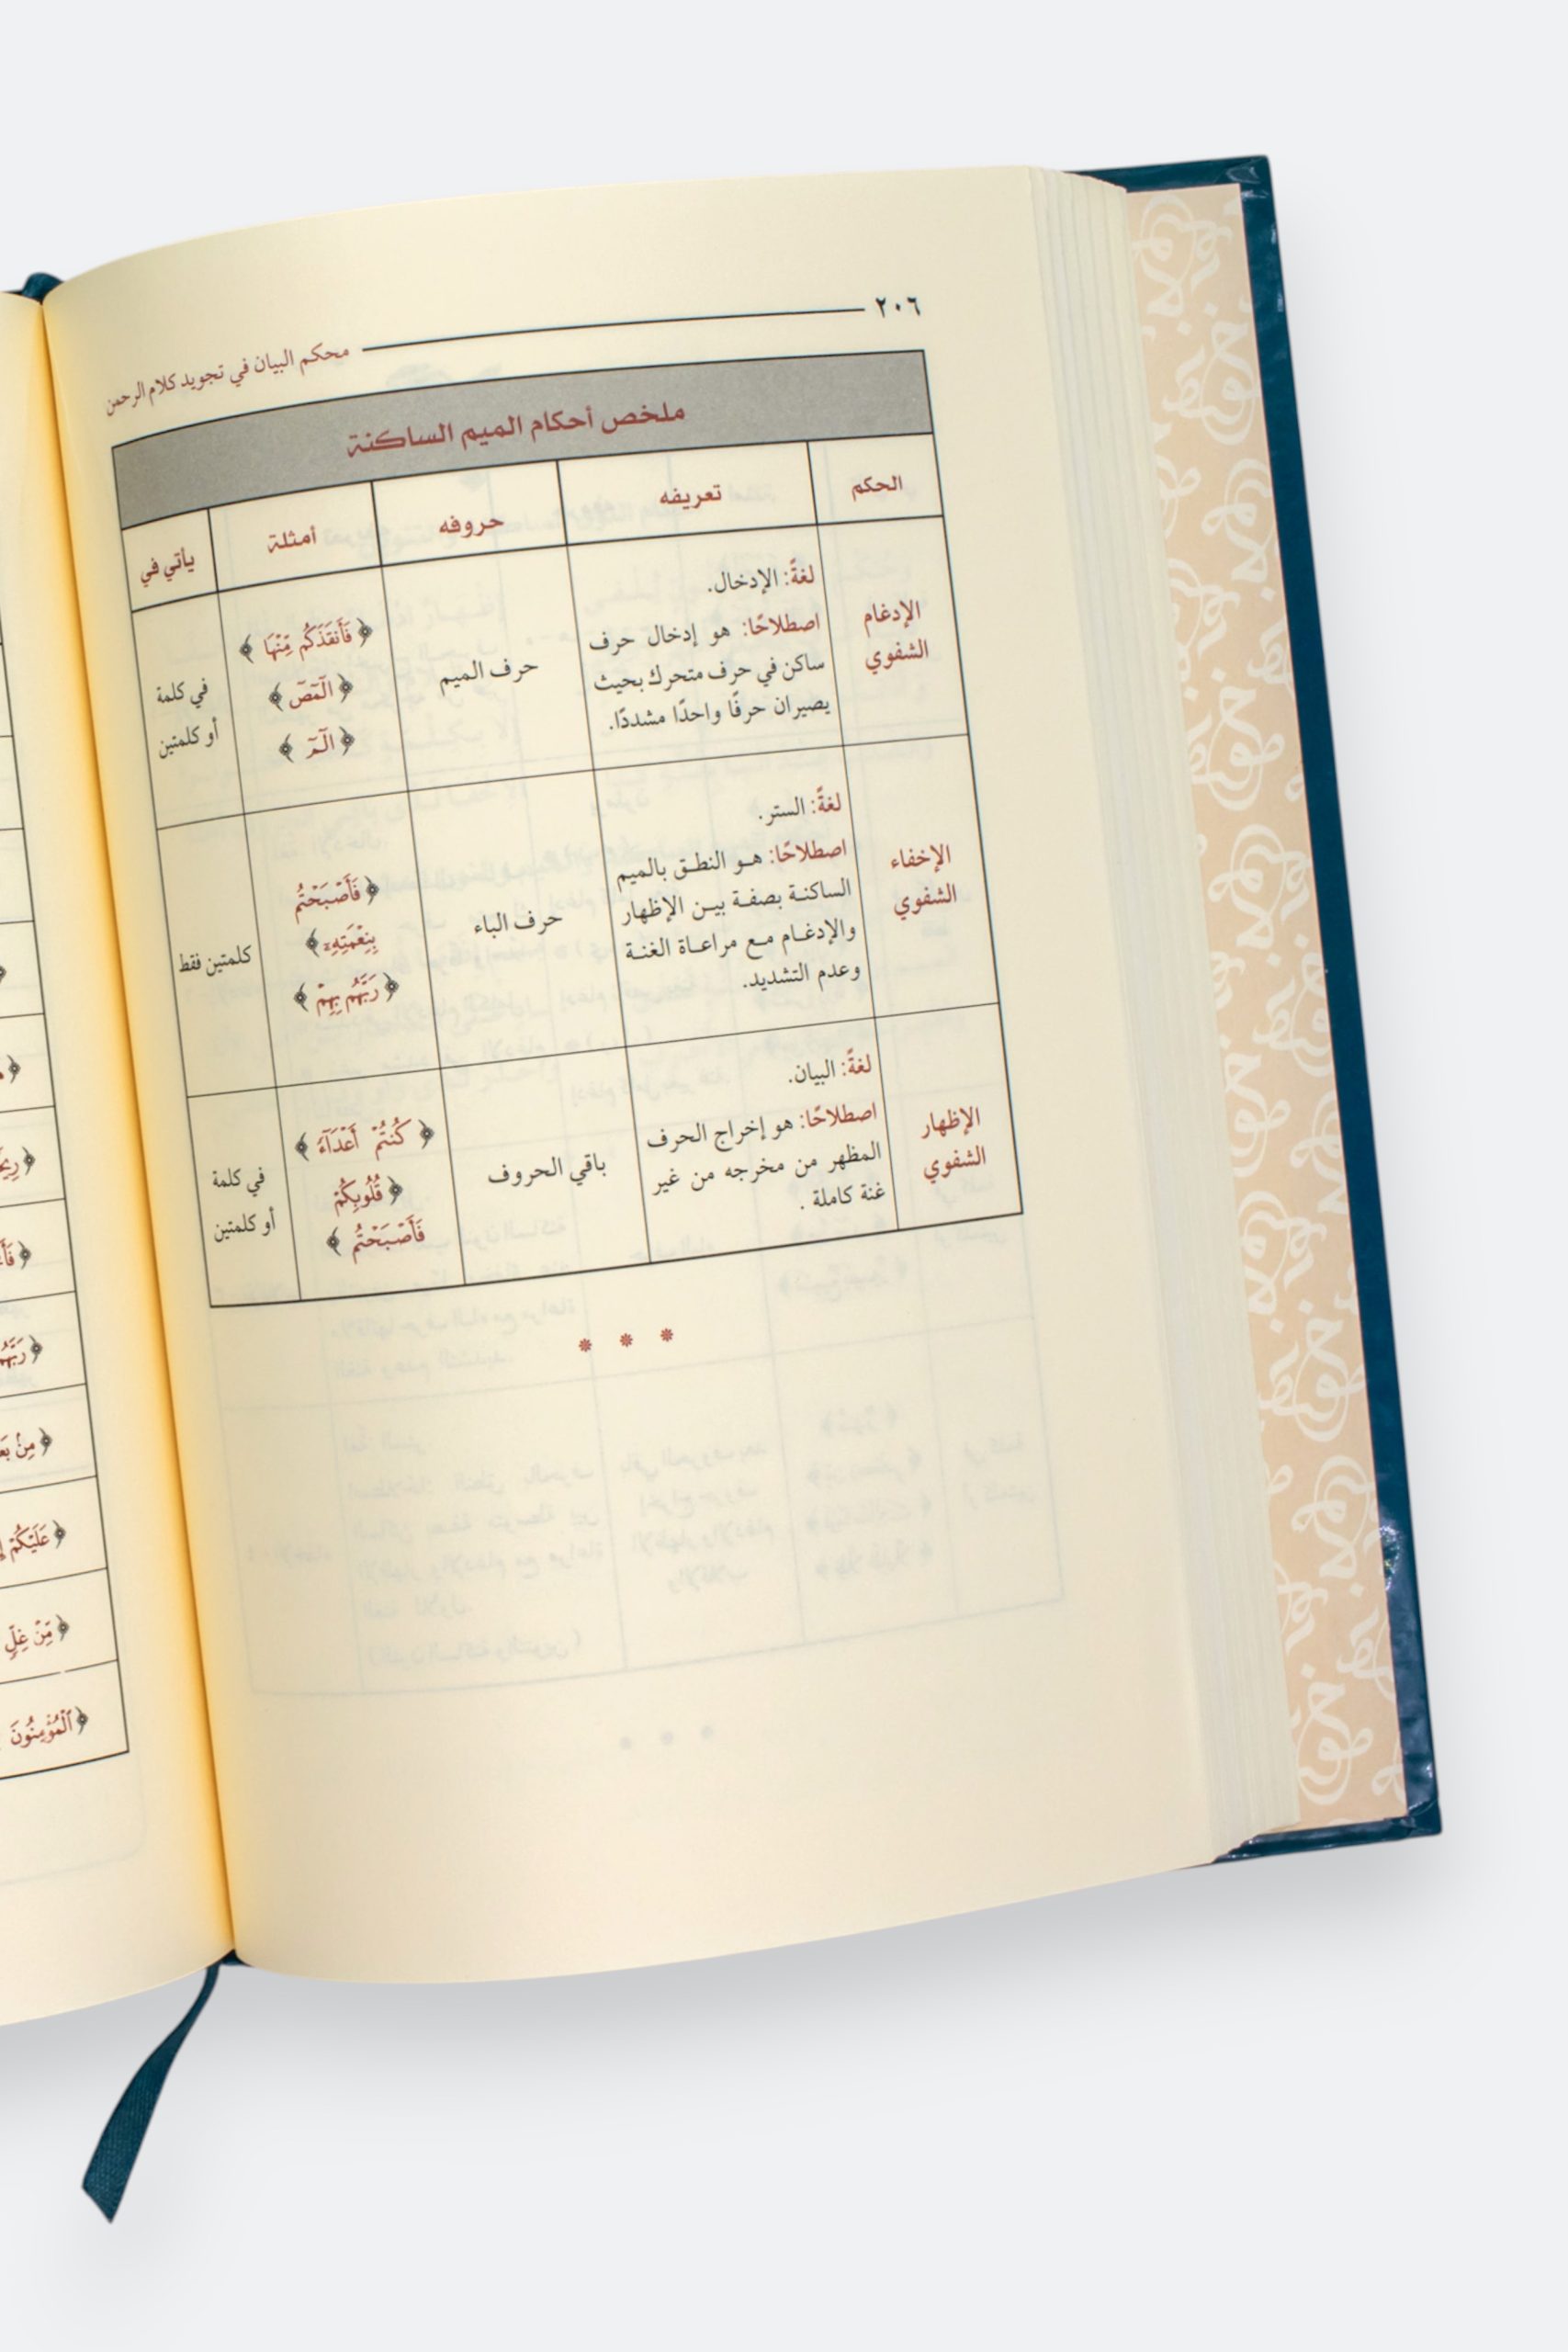 ٢٠٦
محكم البيان في تجويد كلام الرحمن
ملخص أحكام الميم الساكنة
الحكم تعريفه حروفه أمثلة يأتي في
الإدغام
الشفوي
لغةً: الإدخال.
اصطلاحًا: هو إدخال حرف
ساكن في حرف متحرك بحيث
يصيران حرفًا واحدًا مشددًا.
حرف الميم
﴿فَأَنقَذَكُم مِّنْهَا﴾
﴿الٓمٓصٓ﴾
﴿الٓمٓ﴾
في كلمة
أو كلمتين
الإخفاء
الشفوي
لغةً: الستر.
اصطلاحًا: هو النطق بالميم
الساكنة بصفة بين الإظهار
والإدغام مع مراعاة الغنة
وعدم التشديد.
حرف الباء
﴿فَأَصْبَحْتُم
بِنِعْمَتِهِۦ﴾
﴿رَبَّهُم بِهِمْ﴾
كلمتين فقط
الإظهار
الشفوي
لغةً: البيان.
اصطلاحًا: هو إخراج الحرف
المظهر من مخرجه من غير
غنة كاملة .
باقي الحروف
﴿كُنتُمْ أَعْدَآءً﴾
﴿قُلُوبِكُمْ
فَأَصْبَحْتُم﴾
في كلمة
أو كلمتين
﴿مِنْ
﴿عَلَيْكُمْ
﴿مِّنْ غِلٍّ
﴿ٱلْمُؤْمِنُونَ